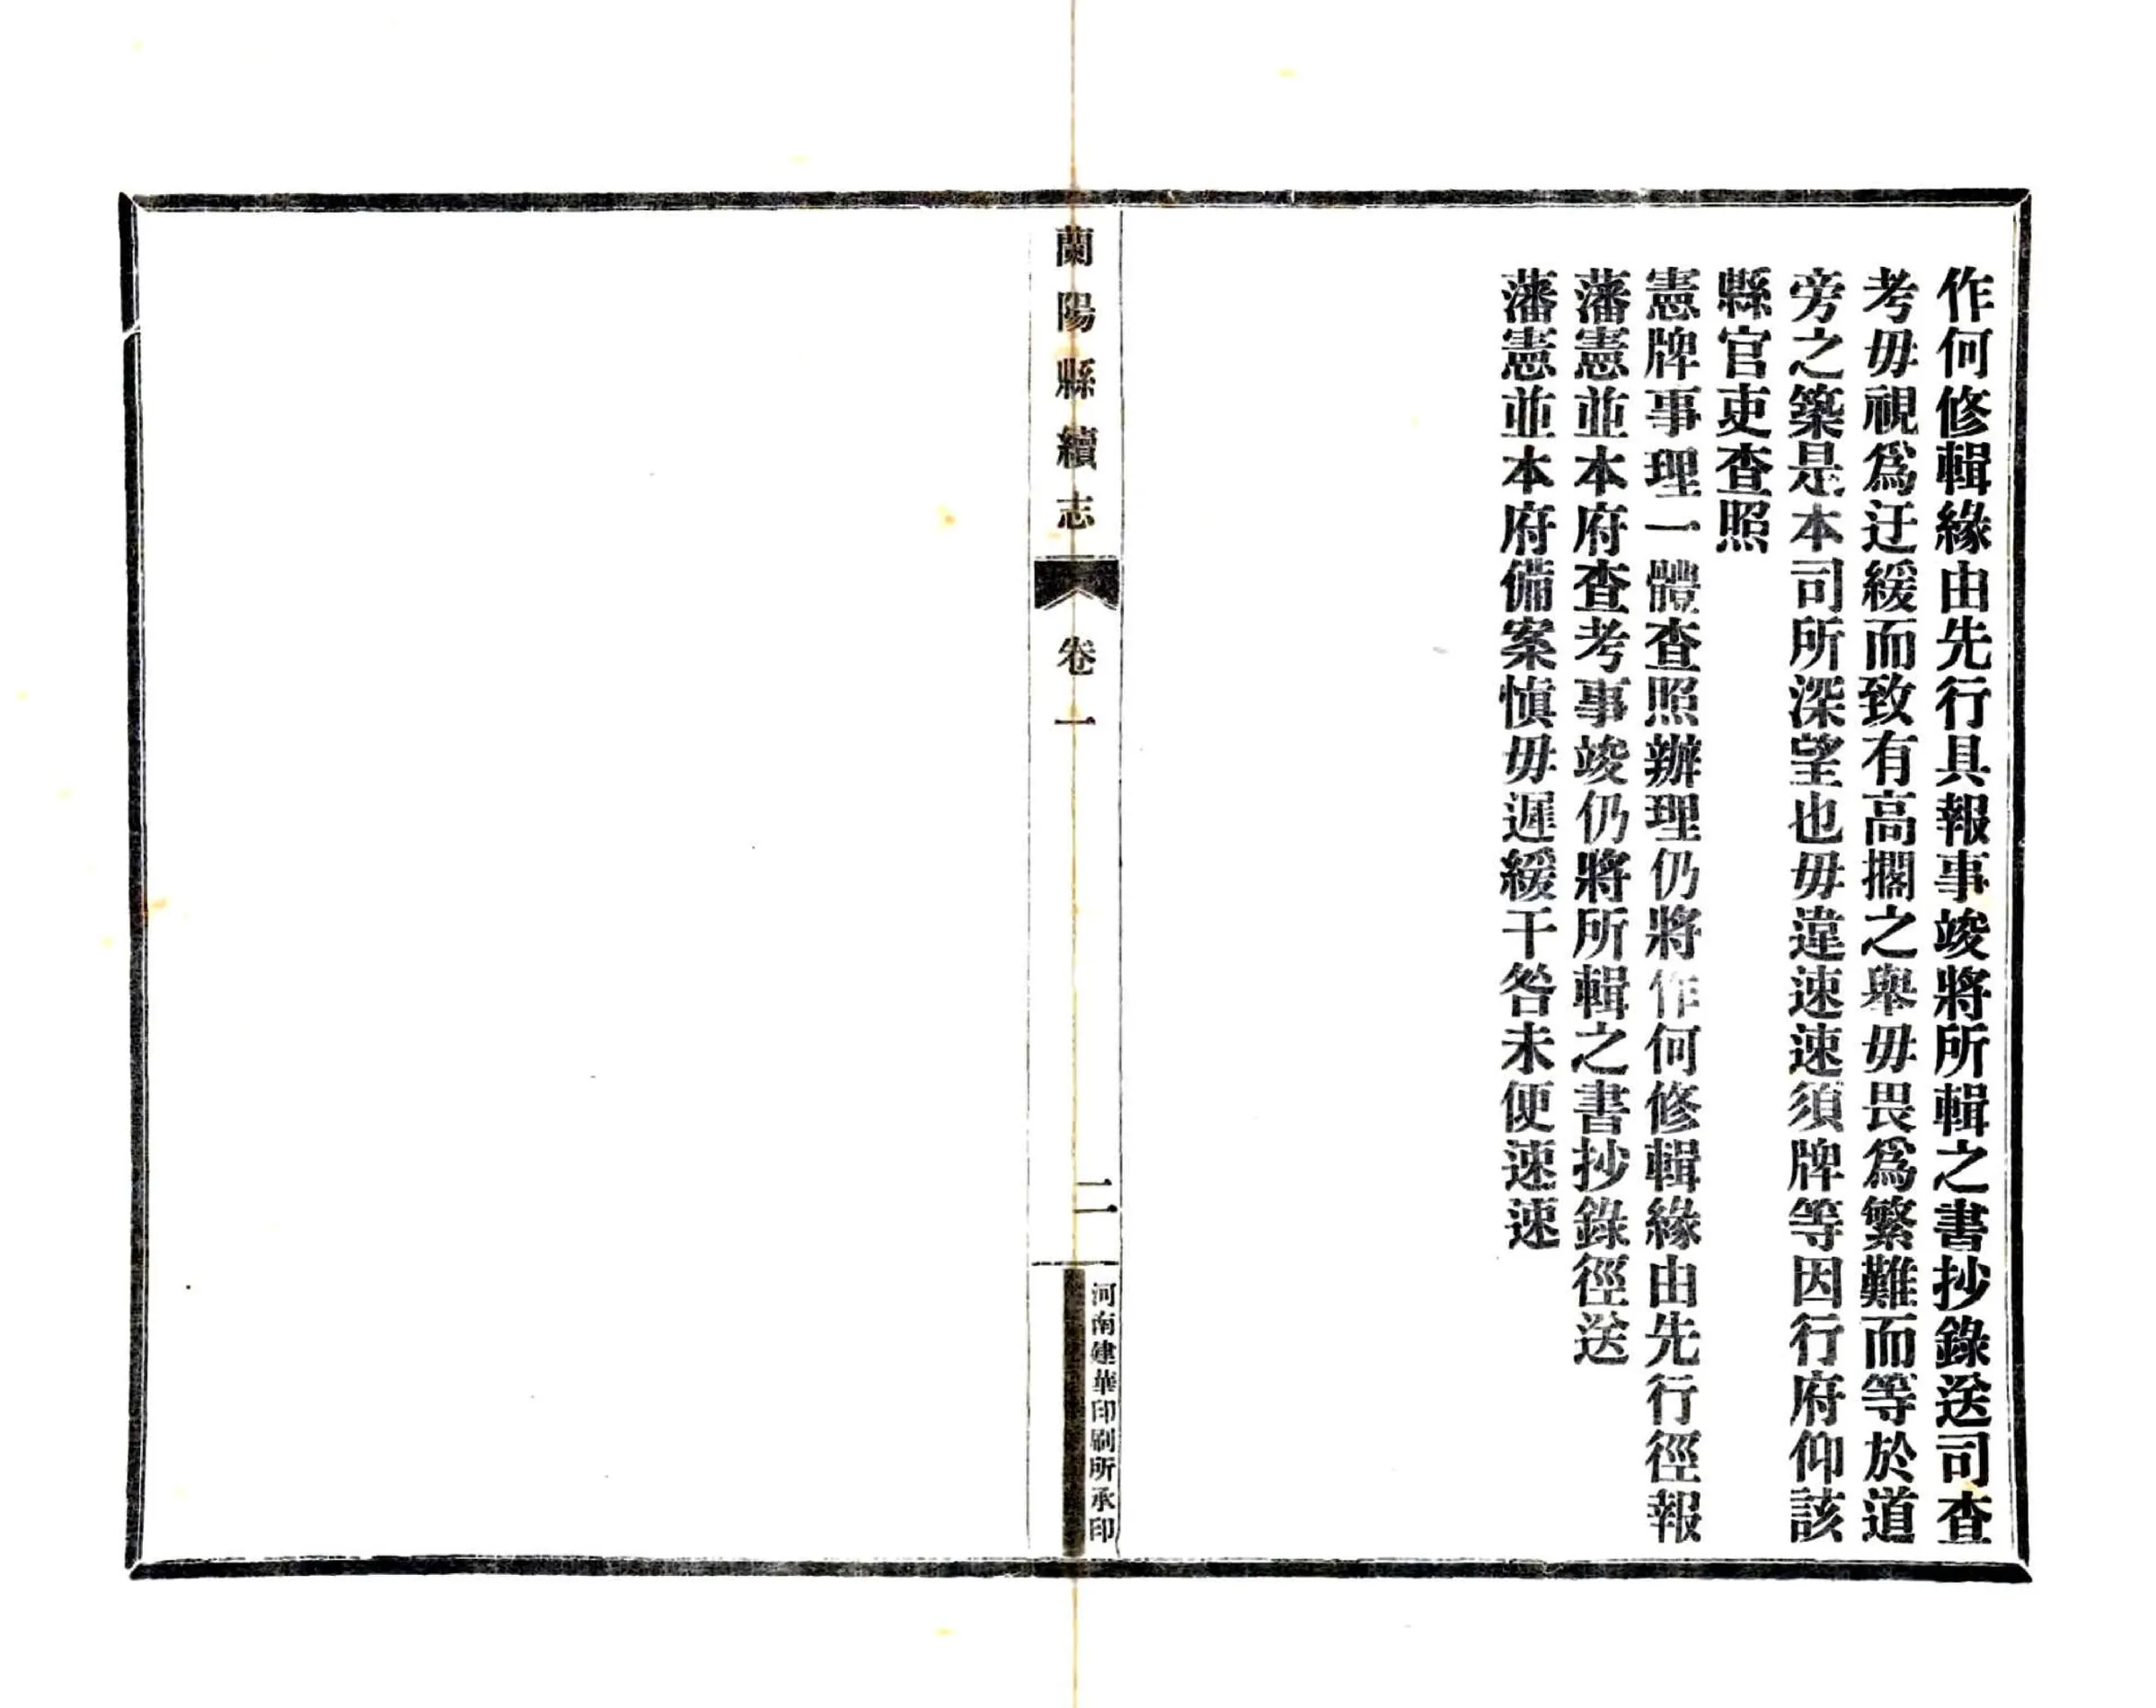 作何修輯緣由先行具報事竣將所輯之書抄錄送司查
考毋視爲迂緩而致有高擱之舉毋畏爲繁難而等於道
旁之築是本司所深望也毋違速速須牌等因行府仰該
縣官吏查照
憲牌事理一體查照辦理仍將作何修輯緣由先行徑報
藩憲並本府查考事竣仍將所輯之書抄錄徑送
藩憲並本府備案慎毋遲緩干咎未便速速
蘭陽縣續志
卷一
二
河南建華印刷所承印